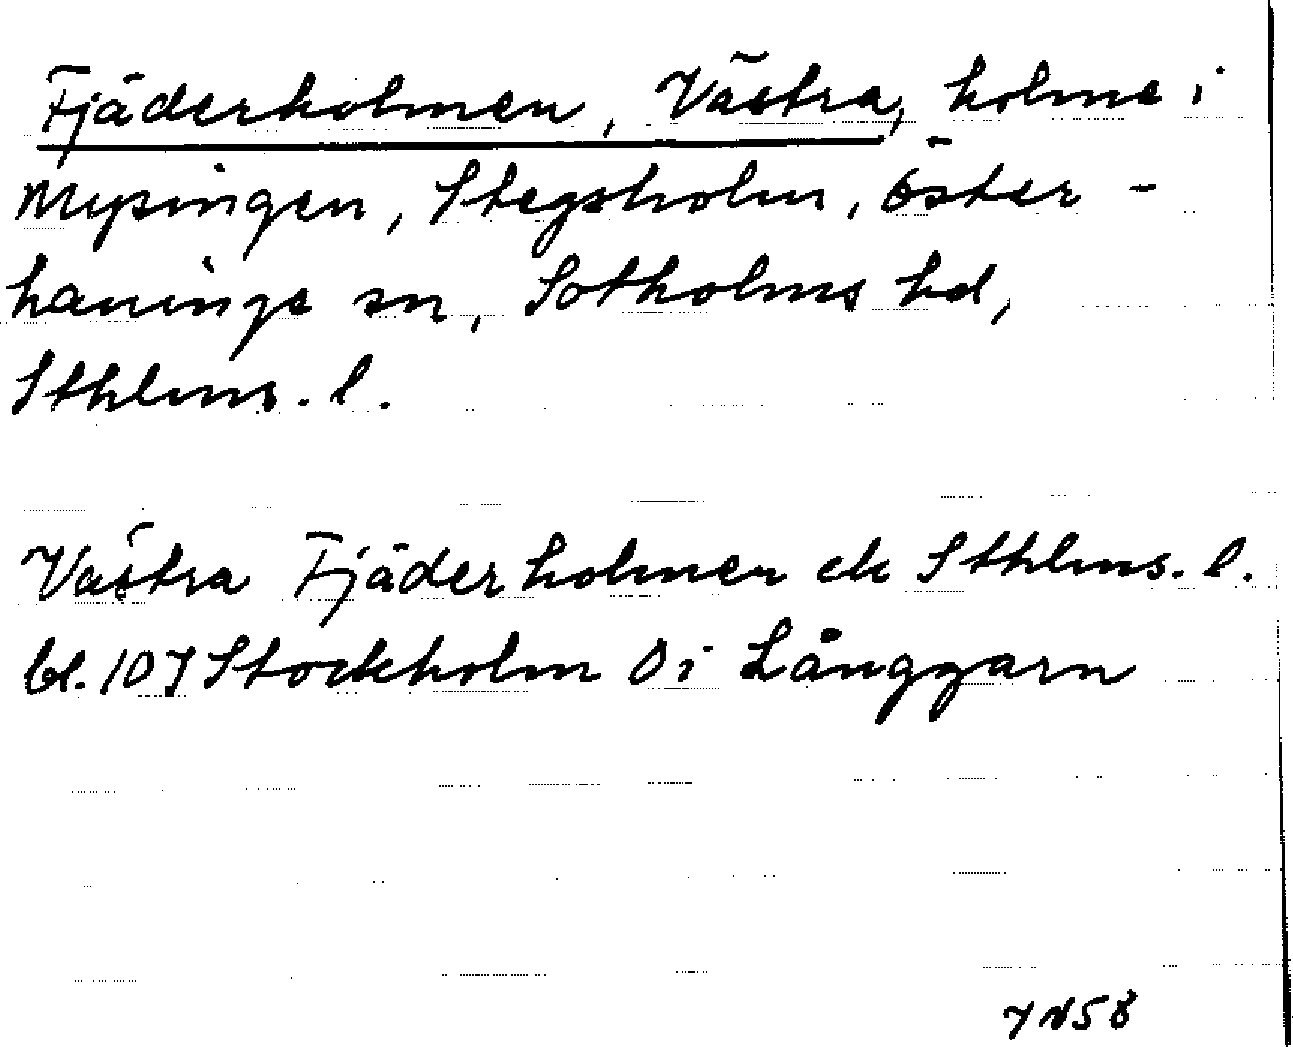 Fjäderholmen, Västra, holme i
Mysingen, Stegsholm, Öster-
haninge sn, Sotholms hd,
Sthlms. l.
Västra Fjäderholmen ek Sthlms. l.
bl. 107 Stockholm O i Långgarn
7 N 58